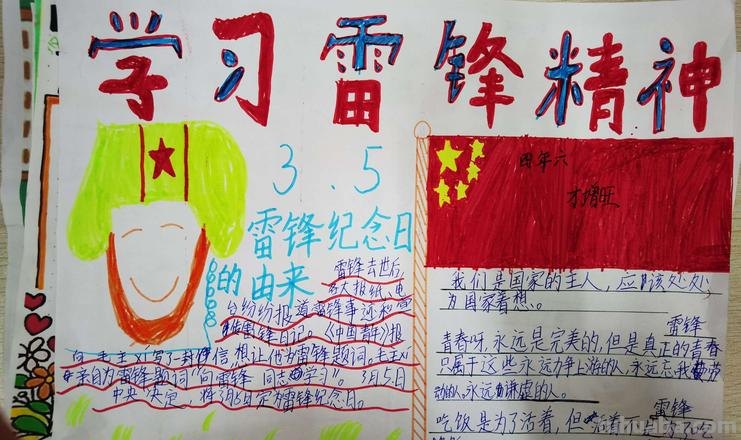 学习雷锋精神
3.5
雷锋纪念日
的由来
雷锋去世后,
各大报纸、电
台纷纷报道雷锋事迹和
雷锋日记。《中国青年》报
向毛主席写了一封信,想让他为雷锋题词。毛主席
亲自为雷锋题词“向雷锋同志学习”。3月5日
中央决定,将3月5日定为雷锋纪念日。
四年六
我们是国家的主人,应该处处
为国家着想。
雷锋
青春呀,永远是完美的,但是真正的青春
只属于这些永远力争上游的人,永远忘我劳
动的人,永远谦虚的人。
雷锋
吃饭是为了活着,但活着不是为了